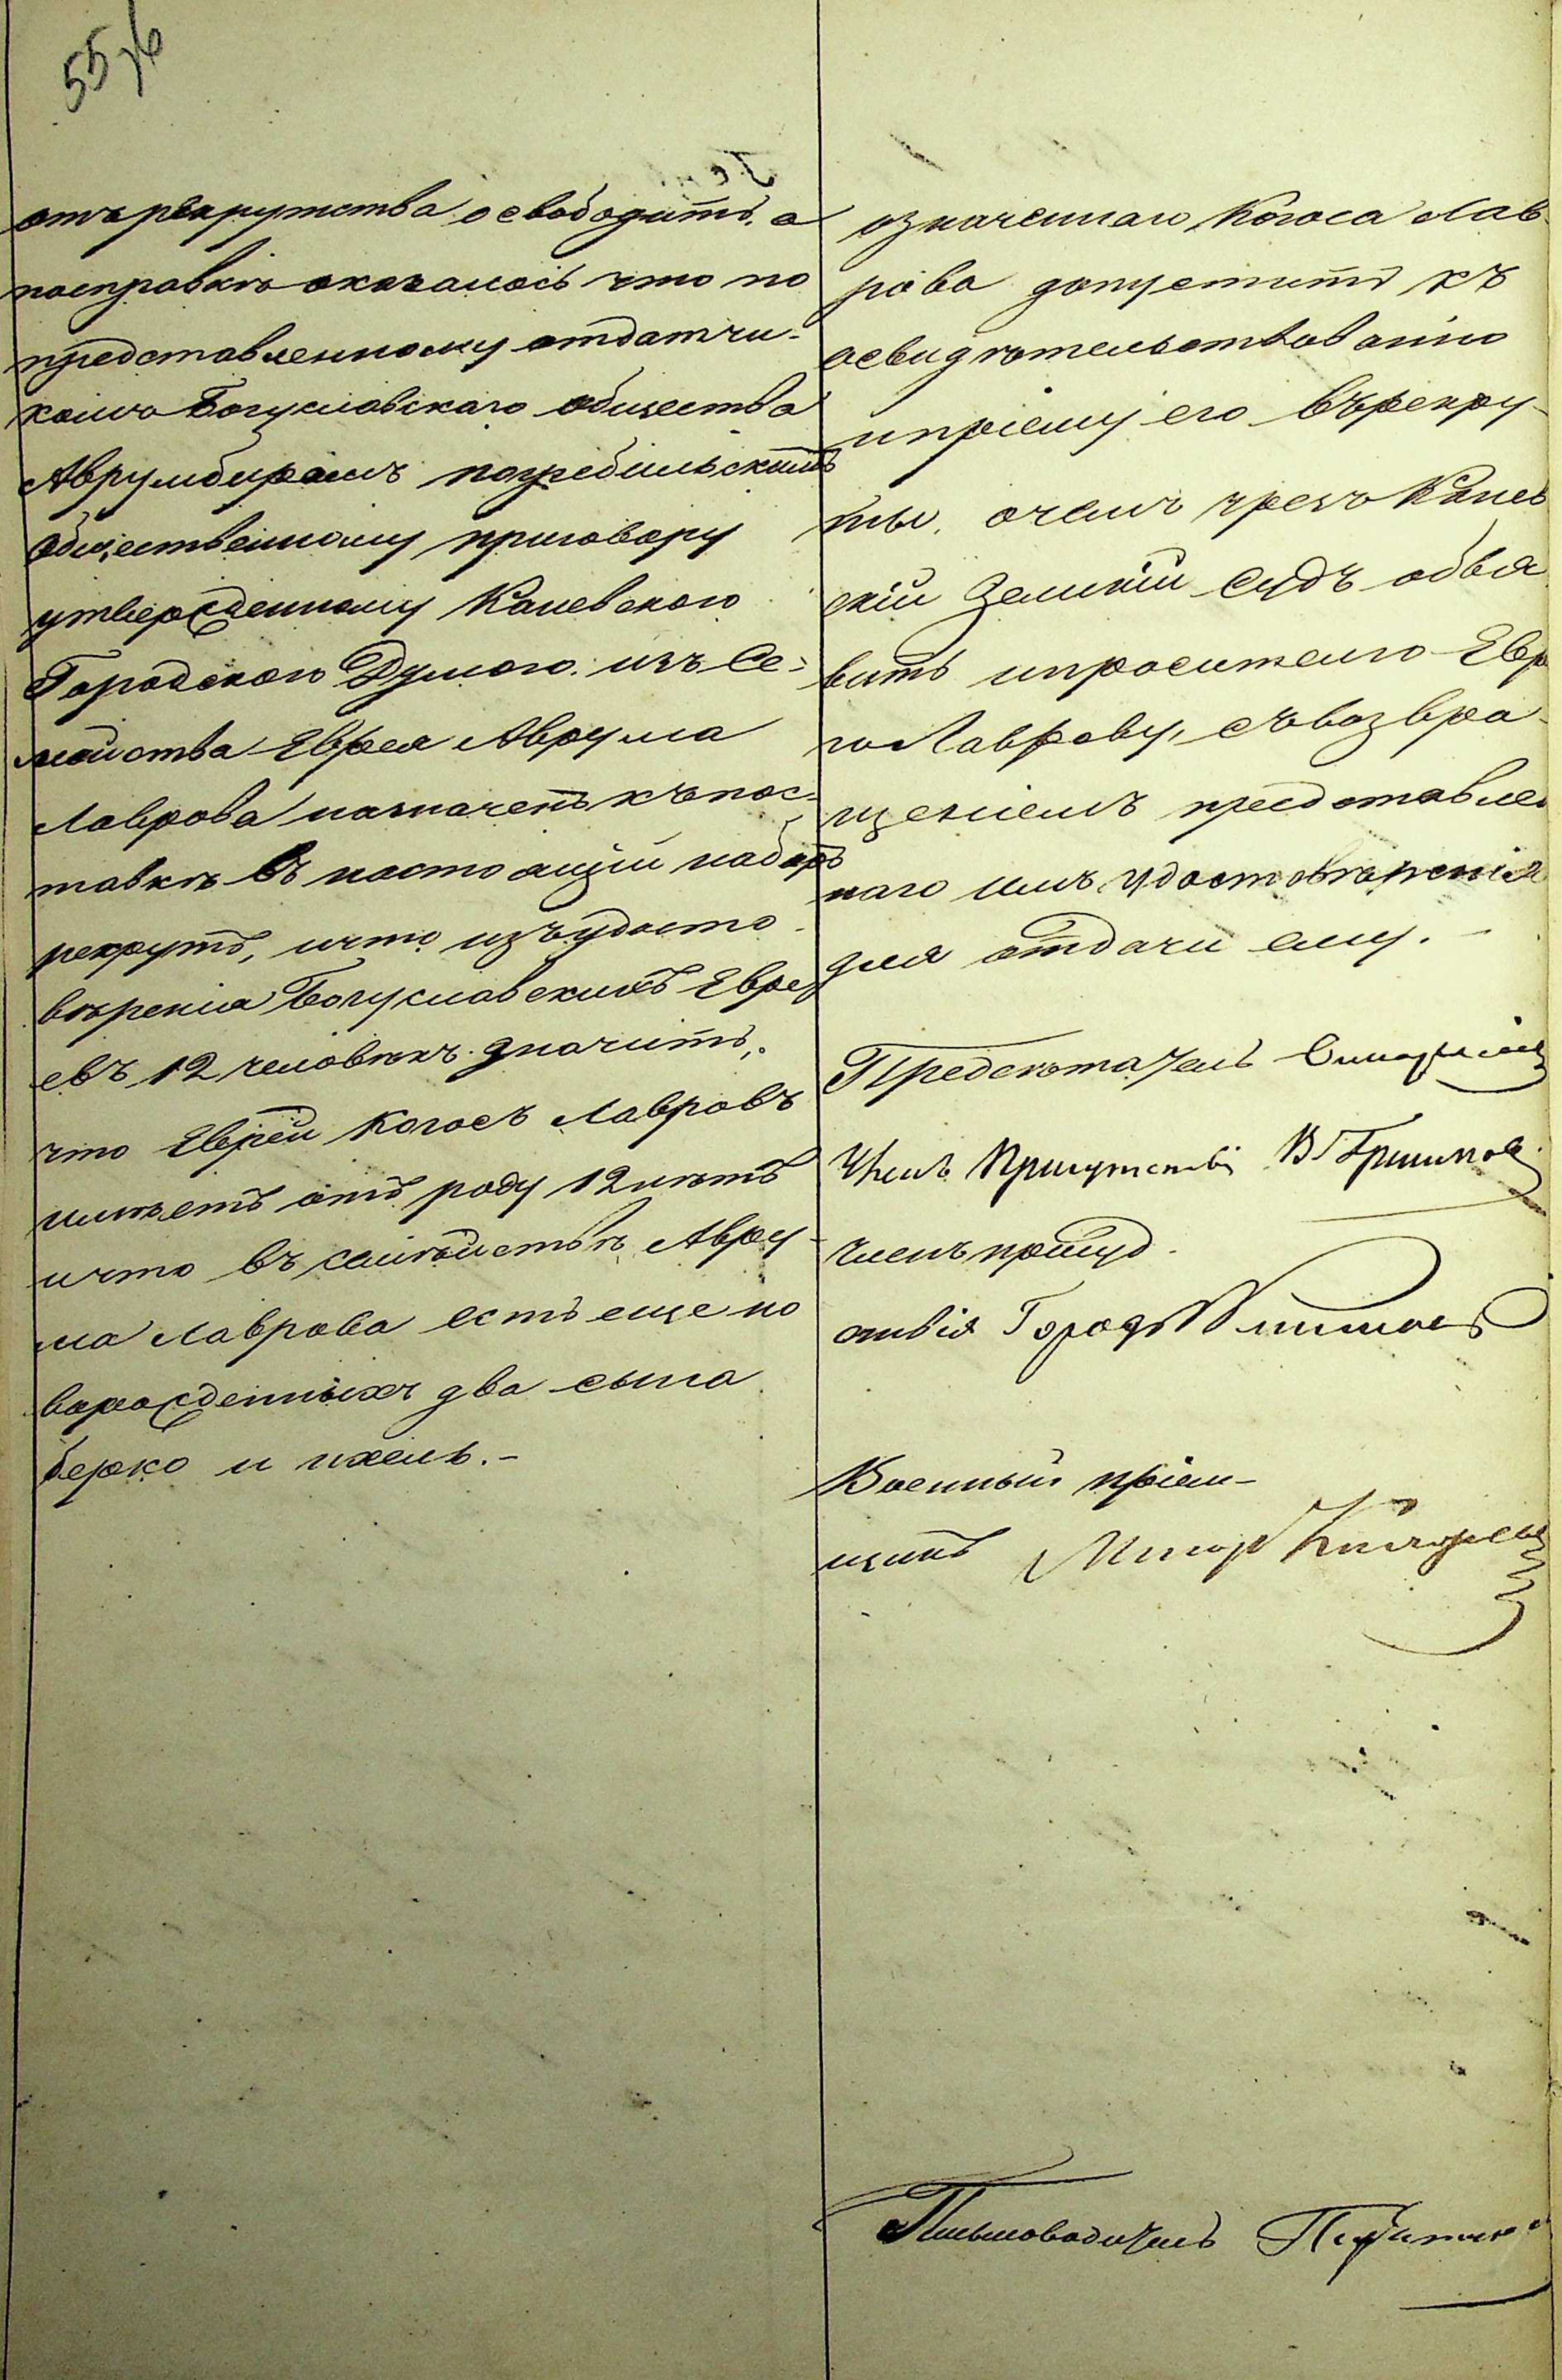 55 об
отъ рекрутства освободить. а
посправкѣ оказалось что по
представленному отдатчи-
комъ Богуславскаго общества
Аврумберомъ погребильскимъ
общественному приговору
утвержденному Каневского
Городского Думого. изъ Се-
мейства Еврея Аврума
Лаврова назначенъ къ пос-
тавкѣ въ настоящій наборъ
рекрутъ, ичто изъ удосто-
вѣренія Богуславскихъ Евре
евъ 12 человѣкъ. Значитъ,
что Еврей Когосъ Лавровъ
имѣетъ отъ роду 12 лѣтъ
ичто въ семѣйствѣ Авру-
ма Лаврова есть еще но
ворожденныхъ два сына
берко и ихель.-
означеннаго Когоса Лав-
рова допустить къ
освидѣтельствованію
ипріему его въ рекру-
ты. очемъ чрезъ Канев
скій Земскій Судъ объя
вить ипросителю Евр
ю Лаврову, съ возвра-
щеніемъ представлен
наго имъ удостовѣренія
для отдачи ему.-
Предсѣдатель
Членъ Присутствія В
членъ присуд-
ствія Город
Военный пріем-
щикъ Маіоръ
Письмоводитель